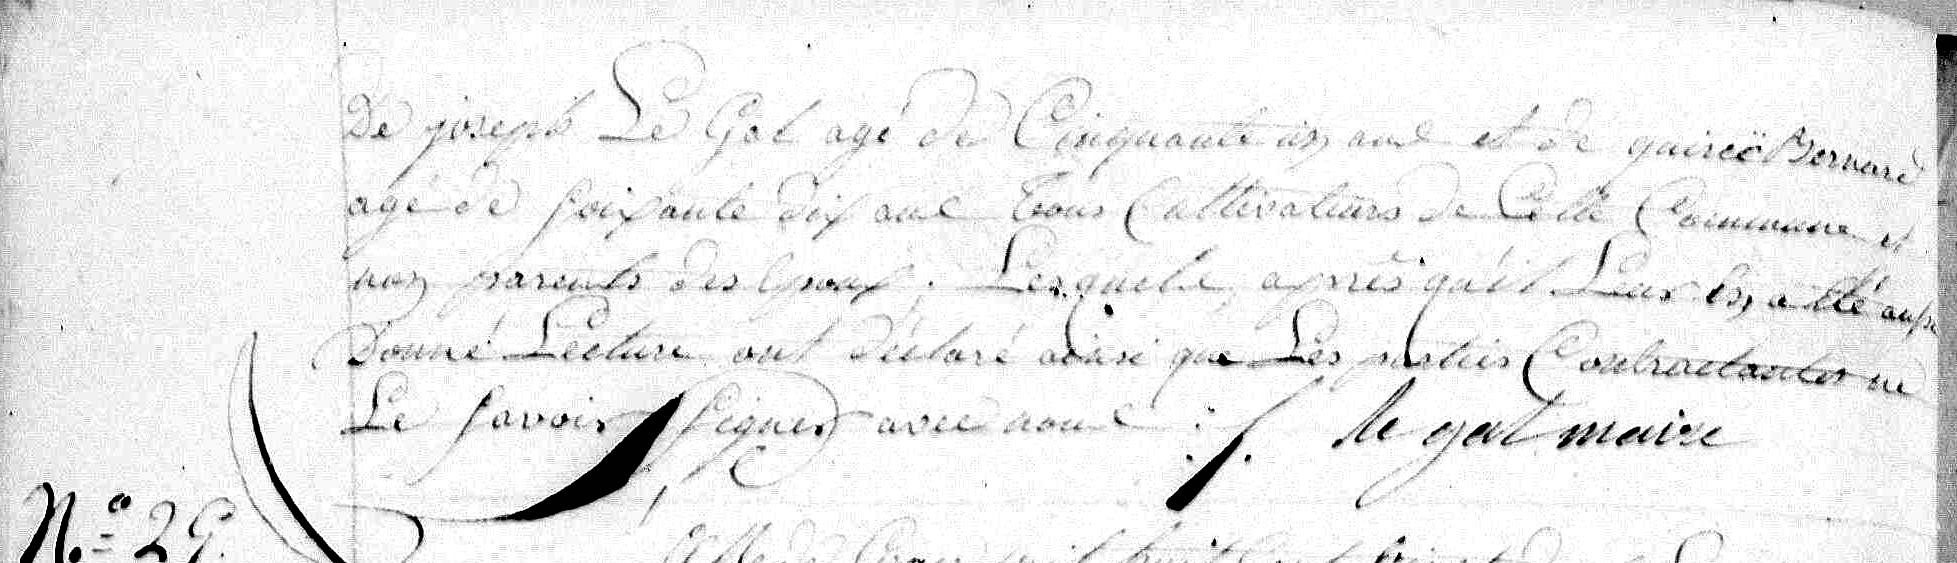 De joseph Le Gal agé de Cinquante un ans et de guirec Bernard
agé de soixante dix ans Tous Cultivateurs de Cette Commune et
non parents des Epoux ; Lesquels, après qu'il Leur En a été aussi
Donné Lecture ont déclaré ainsi que Les parties Contractantes ne
Le savoir signer avec nous ./. le gal maire
N.º 29.
mil huit Cent